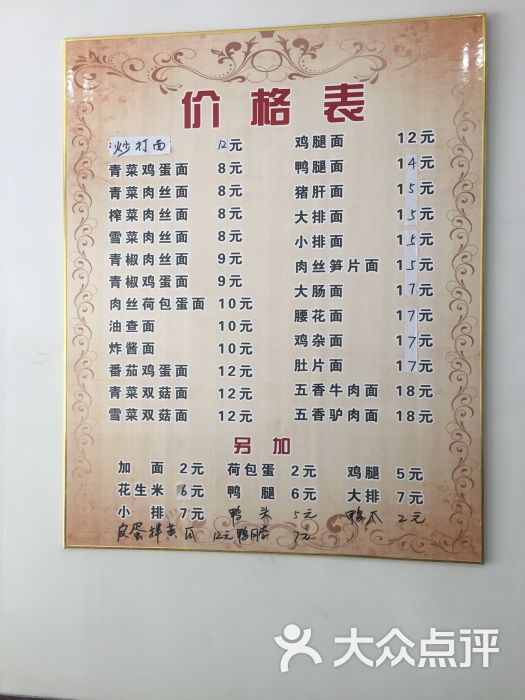 价格表
炒打面 12元
青菜鸡蛋面 8元
青菜肉丝面 8元
榨菜肉丝面 8元
雪菜肉丝面 8元
青椒肉丝面 9元
青椒鸡蛋面 9元
肉丝荷包蛋面 10元
油查面 10元
炸酱面 10元
番茄鸡蛋面 12元
青菜双菇面 12元
雪菜双菇面 12元
鸡腿面 12元
鸭腿面 14元
猪肝面 15元
大排面 15元
小排面 15元
肉丝笋片面 15元
大肠面 17元
腰花面 17元
鸡杂面 17元
肚片面 17元
五香牛肉面 18元
五香驴肉面 18元
另加
加面 2元 荷包蛋 2元 鸡腿 5元
花生米 6元 鸭腿 6元 大排 7元
小排 7元 鸭头 5元 鸭爪 2元
皮蛋拌黄瓜 12元 鸭脖 7元
大众点评